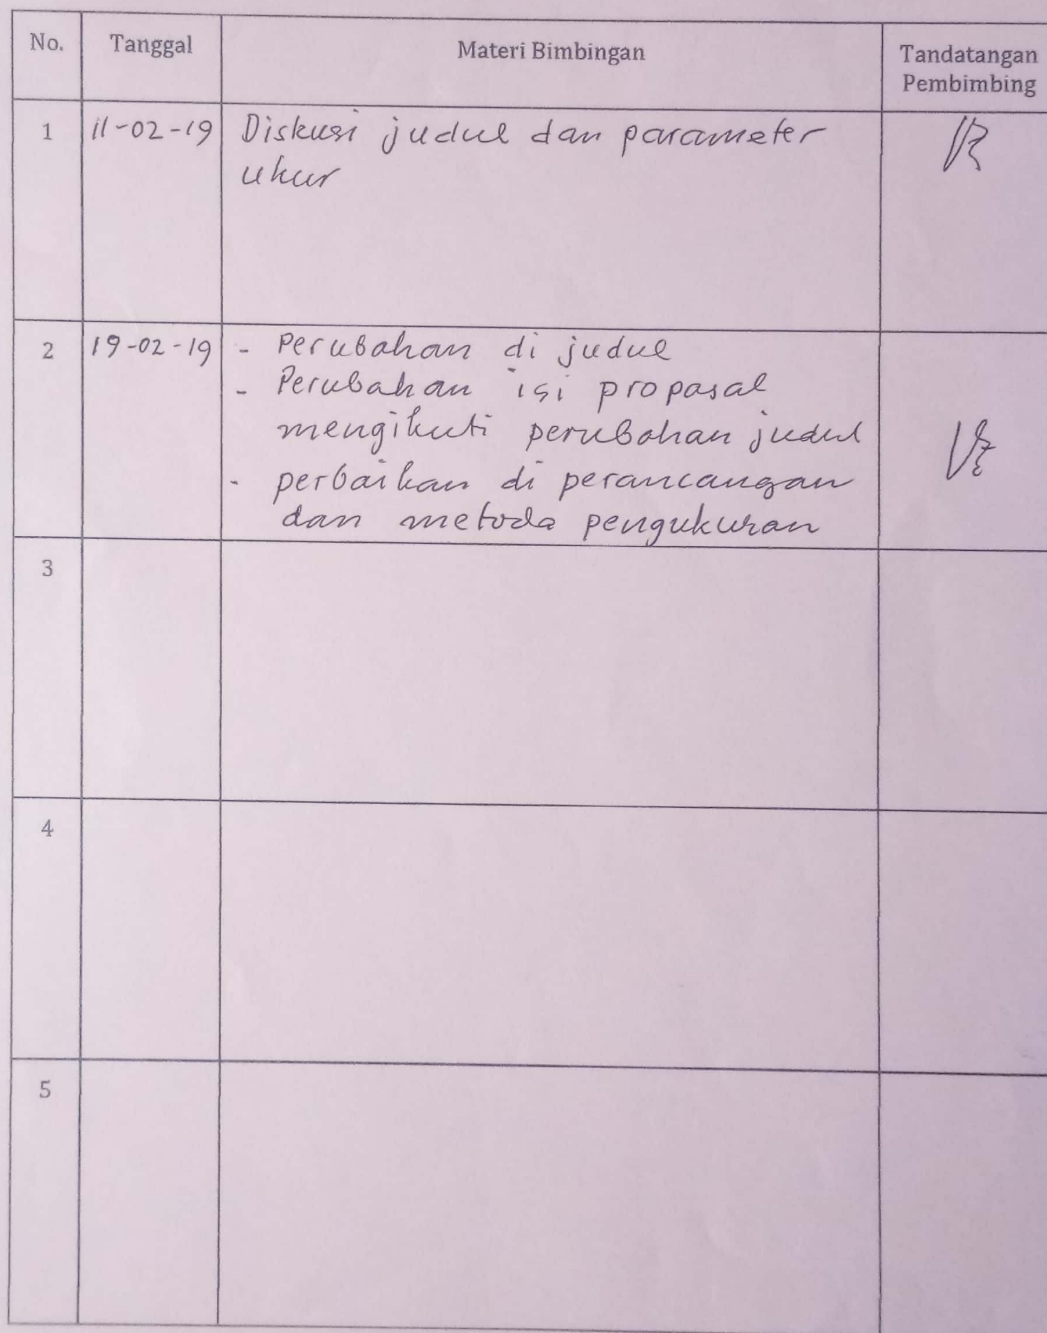 No. Tanggal Materi Bimbingan Tandatangan
Pembimbing
1 11-02-19 Diskusi judul dan parameter
ukur
2 19-02-19 - Perubahan di judul
- Perubahan isi proposal
mengikuti perubahan judul
- perbaikan di perancangan
dan metoda pengukuran
3
4
5